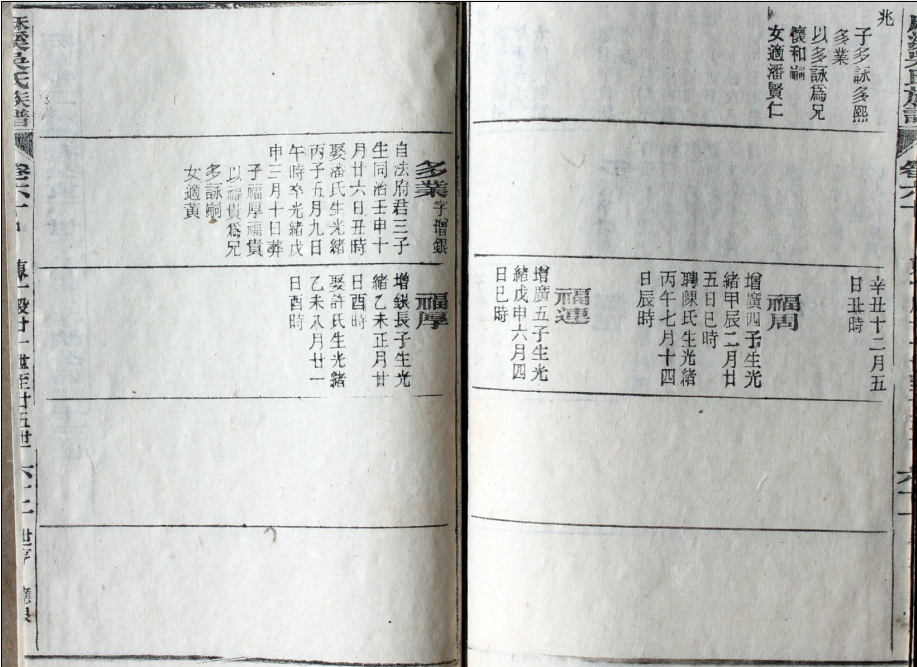 兆
子多詠多熙
多業
以多詠為兄
懷和嗣
女適潘賢仁
辛丑十二月五
日丑時
福周
增廣四子生光
緒甲辰二月廿
五日巳時
聘陳氏生光緒
丙午七月十四
日辰時
福運
增廣五子生光
緒戊申六月四
日巳時
多業字增銀
自法府君三子
生同治壬申十
月廿六日丑時
娶潘氏生光緒
丙子五月九日
午時卒光緒戊
申三月十日葬
子福厚福貴
以福貴為兄
多詠嗣
女適黃
福厚
增銀長子生光
緒乙未正月廿
日酉時
娶許氏生光緒
乙未八月廿一
日酉時
吳氏族譜
卷六十
廿一世至廿五世
六十二
世序